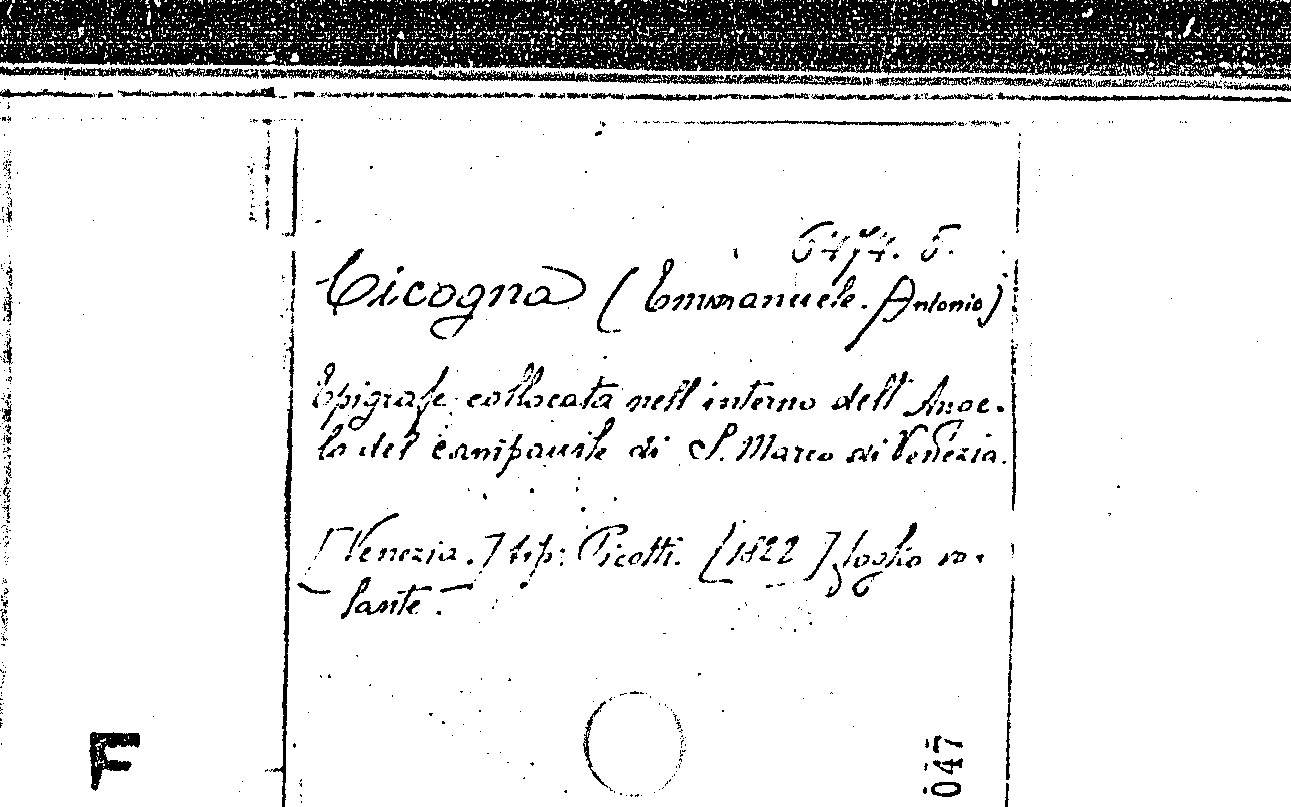 6474. 5.
Cicogna (Emmanuele. Antonio)
Epigrafe collocata nell'interno dell'Ange-
lo del campanile di S. Marco di Venezia.
[Venezia.] tip: Picotti. [1822] foglio vo-
lante.
F
047